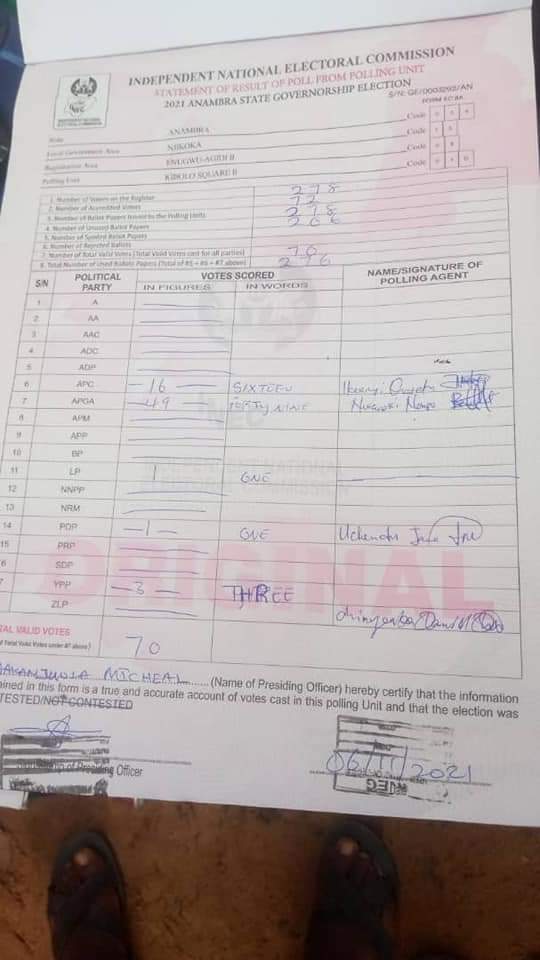 INDEPENDENT NATIONAL ELECTORAL COMMISSION
STATEMENT OF RESULT OF POLL FROM POLLING UNIT
2021 ANAMBRA STATE GOVERNORSHIP ELECTION
FORM EC 8A
State ANAMBRA Code
Local Government Area NJIKOKA Code
Registration Area ENUGWU-AGIDI II Code
Polling Unit Code
1. Number of Voters on the Register 278
2. Number of Accredited Voters 72
3. Number of Ballot Papers Issued to the Polling Unit 278
4. Number of Unused Ballot Papers 206
5. Number of Spoiled Ballot Papers
6. Number of Rejected Ballots
7. Number of Total Valid Votes (Total Valid Votes cast for all parties) 70
8. Total Number of Used Ballot Papers (Total of #5 + #6 + #7 above) 276
S/N POLITICAL PARTY VOTES SCORED NAME/SIGNATURE OF POLLING AGENT
IN FIGURES IN WORDS
1 A
2 AA
3 AAC
4 ADC
5 ADP
6 APC -16- SIXTEEN
7 APGA -49- FORTY NINE
8 APM
9 APP
10 BP
11 LP 1 ONE
12 NNPP
13 NRM
14 PDP -1- ONE
15 PRP
6 SDP
7 YPP -3- THREE
ZLP
TAL VALID VOTES 70
MICHEAL (Name of Presiding Officer) hereby certify that the information
ained in this form is a true and accurate account of votes cast in this polling Unit and that the election was
TESTED/NOT CONTESTED
of Presiding Officer
06/11/2021
INEC
ORIGINAL